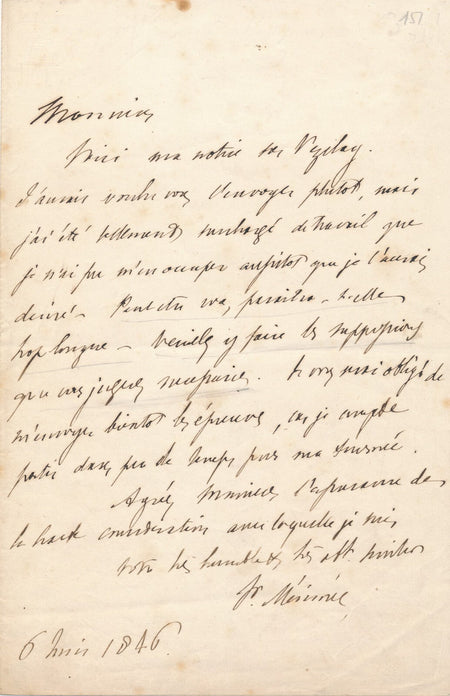 151
Monsieur
Voici ma notice sur Vezelay.
J'aurais voulu vous l'envoyer plutot, mais
j'ai été tellement surchargé de travail que
je n'ai pu m'en occuper aussitot que je l'aurais
désiré – Peut etre vous paraitra-t-elle
trop longue – Veuillez y faire les suppressions
que vous jugerez necessaires. Je vous serai obligé de
m'envoyer bientot les épreuves, car je compte
partir dans peu de temps pour ma tournée.
Agréez Monsieur l'expression de
la haute consideration avec laquelle je suis
votre très humble & très obt serviteur
Pr. Mérimée
6 Juin 1846.